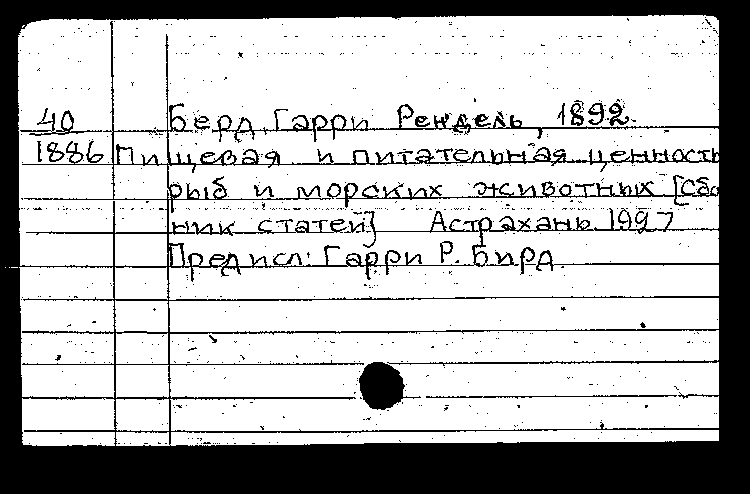 40 Берд, Гарри Рендель, 1892.
1886 Пищевая и питательная ценность
рыб и морских животных [Сбо
ник статей] Астрахань. 1997
Предисл: Гарри Р. Бирд